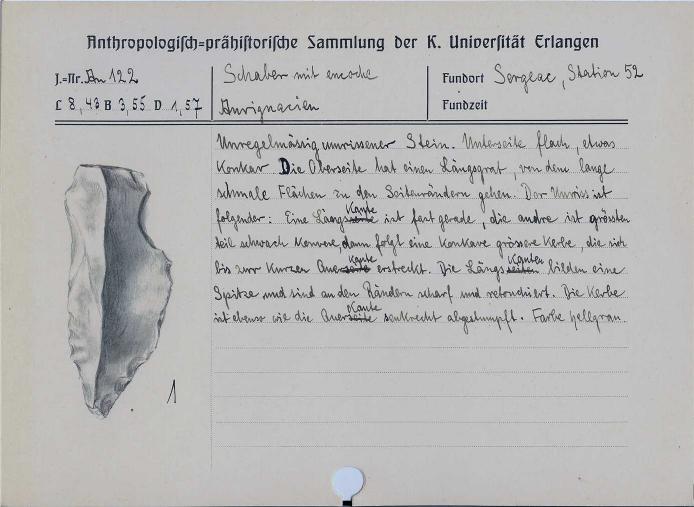 Anthropologisch-prähistorische Sammlung der K. Universität Erlangen
J.-Nr. An 122
Schaber mit encoche
Fundort Sergeac, Station 52
L 8,43 B 3,55 D 1,57
Aurignacien
Fundzeit
Unregelmässig umrissener Stein. Unterseite flach, etwas
Konkav. Die Oberseite hat einen Längsgrat, von dem lange
schmale Flächen zu den Seitenrändern gehen. Der Umriss ist
folgender: Eine Längskante ist fast gerade, die andre ist grössten
teil schwach Konvex, dann folgt eine Konkave grössere Kerbe, die sich
bis zur Kurzen Querkante erstreckt. Die Längskanten bilden eine
Spitze und sind an den Rändern scharf und retouchiert. Die Kerbe
ist ebenso wie die Querkante senkrecht abgestumpft. Farbe hellgrau.
1